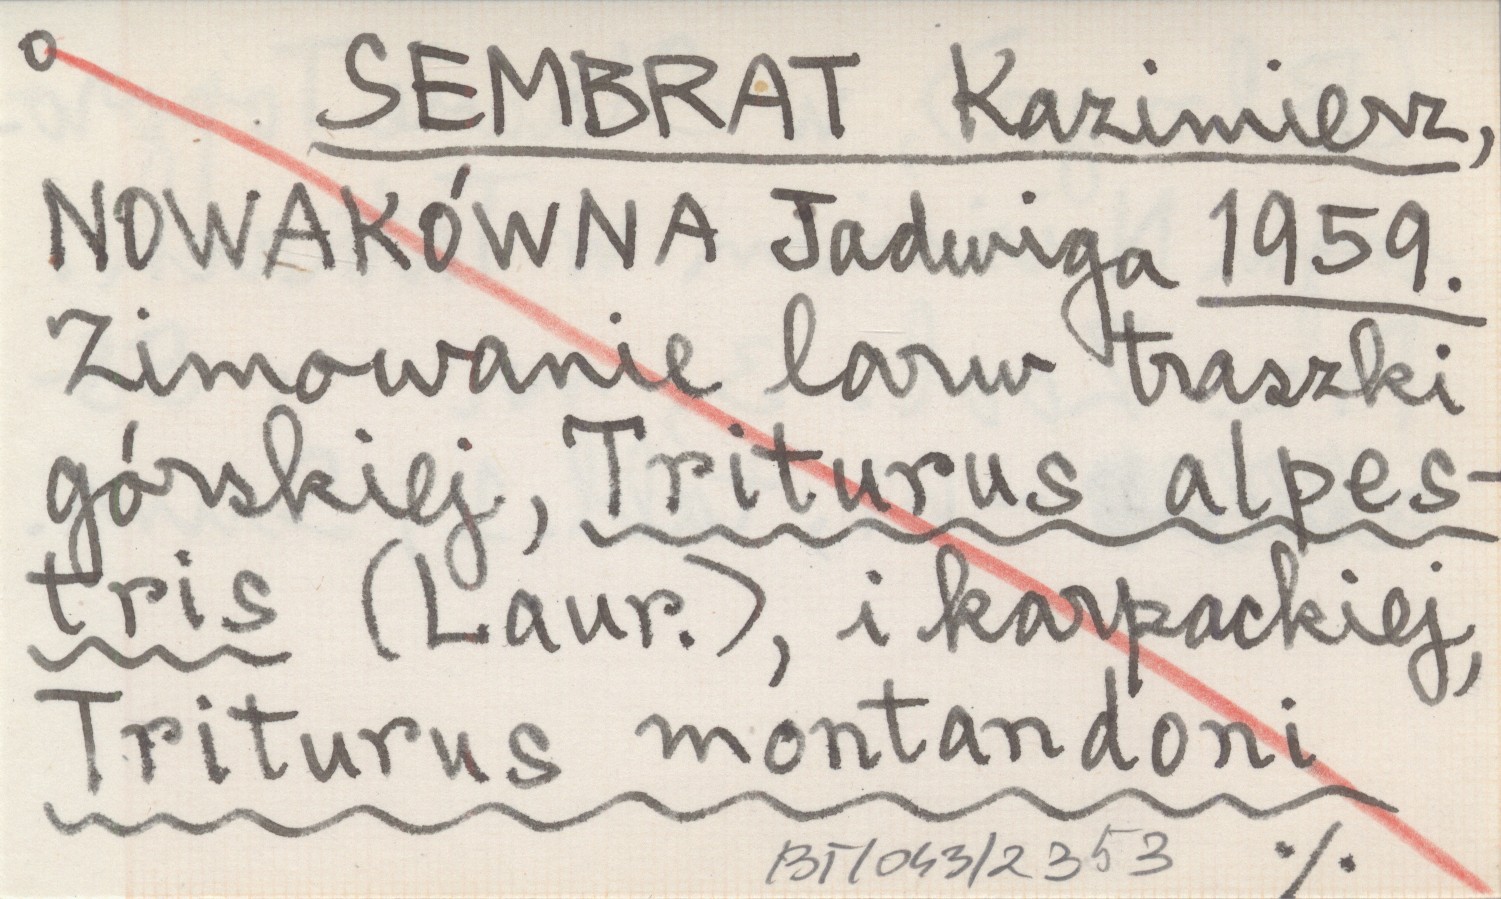 o SEMBRAT Kazimierz,
NOWAKÓWNA Jadwiga 1959.
Zimowanie larw traszki
górskiej, Triturus alpes-
tris (Laur.), i karpackiej,
Triturus montandoni
BT/043/2353 ./.